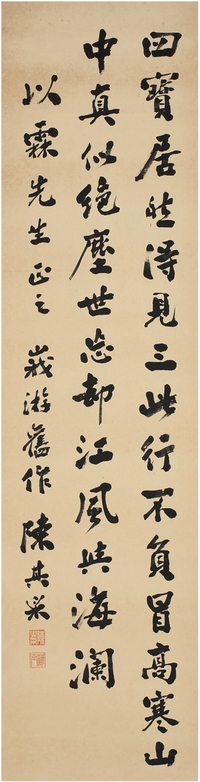 四寶居然得見三此行不負冒高寒山
中真似絕塵世忘却江風與海瀾
以霖先生正之 峩游舊作 陳其采